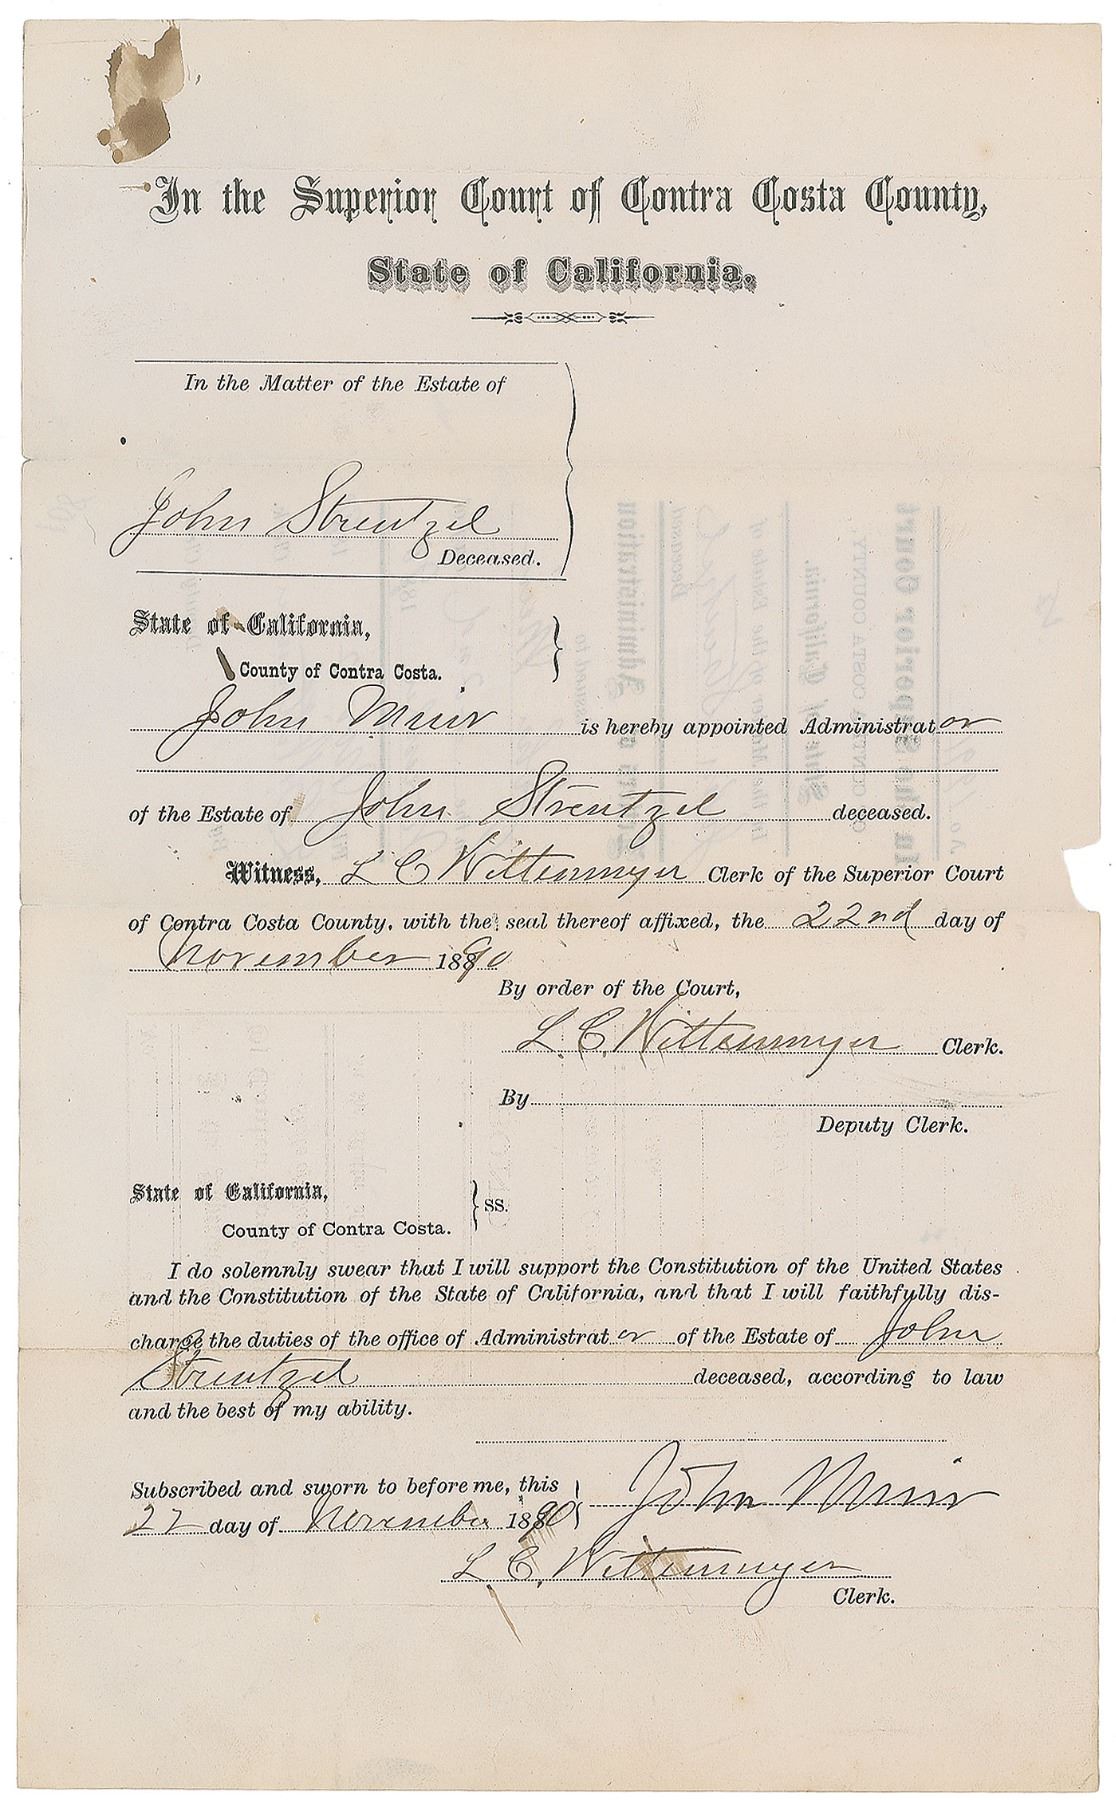 In the Superior Court of Contra Costa County,
State of California.
In the Matter of the Estate of
John Strentzel
Deceased.
State of California,
County of Contra Costa.
John Muir is hereby appointed Administrator
of the Estate of John Strentzel deceased.
Witness, L C Wittenmyer Clerk of the Superior Court
of Contra Costa County, with the seal thereof affixed, the 22nd day of
November 1890
By order of the Court,
L. C. Wittenmyer Clerk.
By
Deputy Clerk.
State of California,
County of Contra Costa. } ss.
I do solemnly swear that I will support the Constitution of the United States
and the Constitution of the State of California, and that I will faithfully dis-
charge the duties of the office of Administrator of the Estate of John
Strentzel deceased, according to law
and the best of my ability.
Subscribed and sworn to before me, this
John Muir
22 day of November 1890
L. C. Wittenmyer
Clerk.